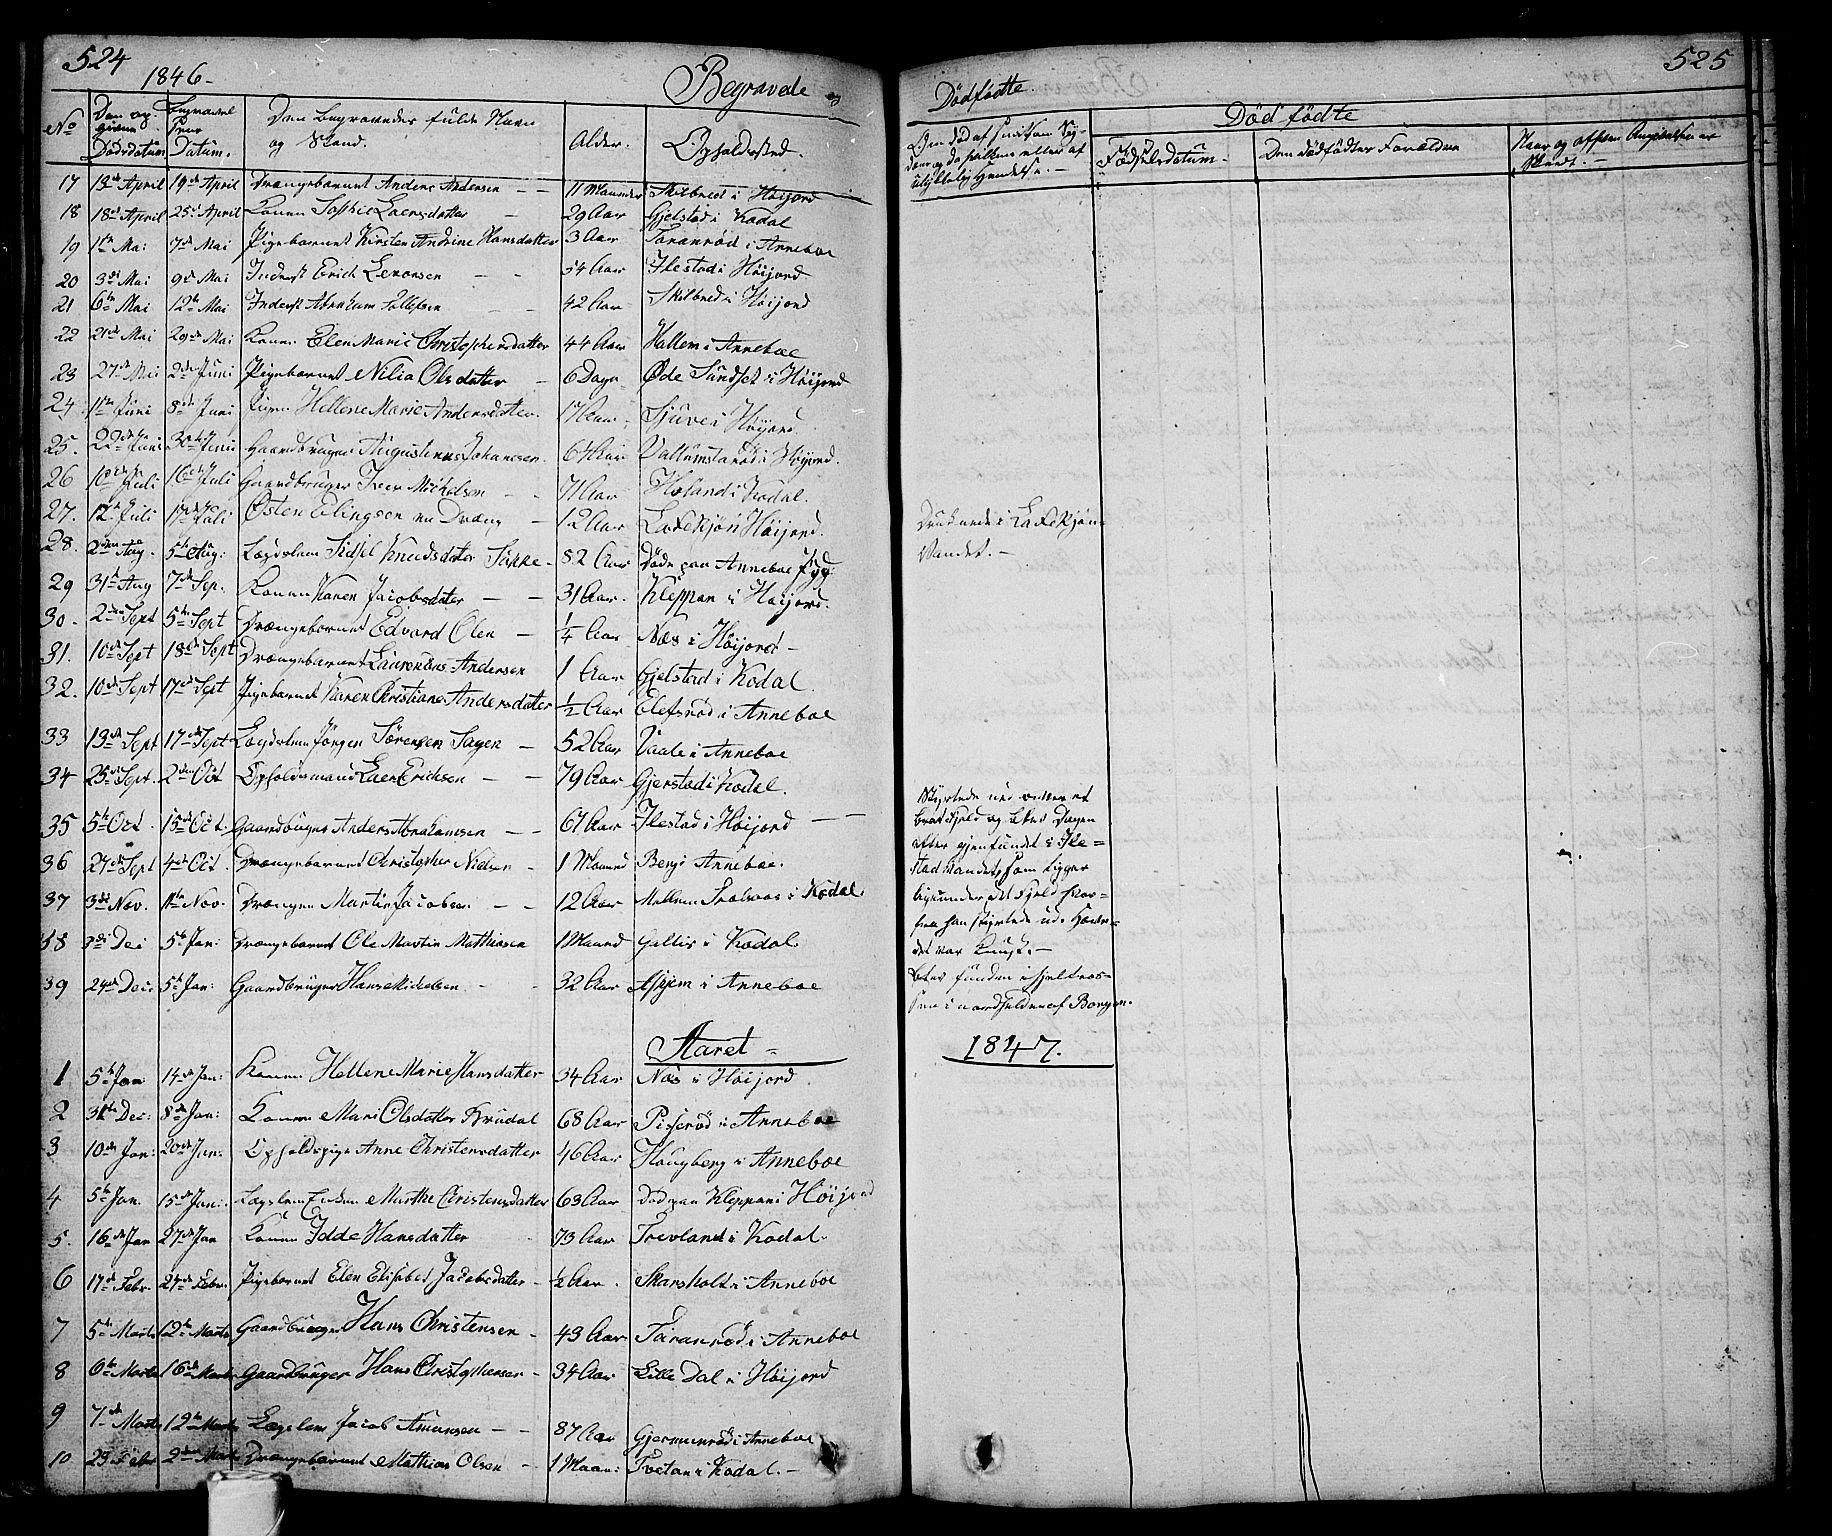 524
1846-
Begravede
No
Den opgivne Dødsdatum
Begravelsens Datum.
Den Begravedes fulde Navn og Stand.
Alder.
Opholdssted.
17 13de April 19de April Drængebarnet Anders Andersen - - 11 Maaneder Skilbred i Høijord
18 18de April 25de April Konen Sophie Larsdatter - 29 Aar Gjelstad i Kodal
19 1te Mai 7de Mai Pigebarnet Kirsten Andrine Hansdatter 3 Aar Taranrød i Anneboe
20 3di Mai 9de Mai Inderst Erich - - 54 Aar Ilestad i Høijord
21 6te Mai 12te Mai Inderst Abraham - - 42 Aar Skilbred i Høijord
22 21de Mai 29de Mai Konen Elen Marie Christophersdatter 44 Aar Hallem i Anneboe
23 27de Mai 2den Juni Pigebarnet Nilia Olsdatter - 6 Dage Øde Sundset i Høijord
24 1te Juni 8de Juni Pigen Hellene Marie Andersdatter 17 Aar Sjuve i Høijord
25. 22de Juni 30te Juni Gaardbruger Augustinus Johansen 64 Aar i Høijord.
26 10de Juli 16de Juli Gaardbruger Iver Michelsen - - 71 Aar Holand i Kodal.
27. 12te Juli 17de Juli Østen Elingsen en Dræng - 12 Aar Laxekjøn Høijord.
28. 2den Aug. 5te Aug: Lægdslem Sidsel Knudsdatter - 82 Aar Døde paa Anneboe
29 31te Aug 7de Sep. Konen Karen Jacobsdatter - - 31 Aar. Kleppan i Høijord.
30. 2den Sept 5te Sept Drængebarnet Edvard Olen - 1/4 Aar Næs i Høijord -
31. 10de Sept 18de Sept Drængebarnet Laurentius Andersen 1 Aar Gjelstad i Kodal.
32. 10de Sept 17de Sept Pigebarnet Karen Christiane Andersdatter 1/2 Aar Elefsrød i Anneboe
33 13de Sept 17de Sept Lægdslem Jørgen Sørensen - 52 Aar Vaale i Anneboe
34 25de Sept. 2den Oct Opholdsmand Lars Ericksen - - 79 Aar Gjerstad i Kodal.
35 5te Oct. 15de Oct. Gaardbruger Anders Abrahamsen - - 61 Aar Ilestad i Høijord - -
36 27de Sept 4de Oct. Drængebarnet Christopher Nielsen - 1 Maaned Berg i Anneboe.
37 3de Nov. 11te Nov. Drængen Martin Jacobsen - - 12 Aar Mellem i Kodal.
38 3di Dec 5te Jan: Drængebarnet Ole Martin Mathiasen - 1 Maaned Gallis i Kodal.
39 24de Dec: 5te Jan: Gaardbruger Hans Mickelsen - - 32 Aar Askjem i Anneboe
Aaret -
1 5te Jan 14de Jan: Konen Hellene Marie Hansdatter 34 Aar Næs i Høijord.
2 31te Dec: 8de Jan: Konen Mari Olsdatter 68 Aar i Anneboe
3 10de Jan: 20de Jan: Opholdspige Anne Christensdatter 46 Aar Hougberg i Anneboe
4 5te Jan. 15de Jan: Lægslem Enken Marthe Christensdatter 63 Aar Død paa Kleppan i Høijord
5. 16de Jan 27de Jan Konen Idde Hansdatter - 73 Aar Trevland i Kodal.
6 17de Febr. 24de Febr. Pigebarnet Elen Elisebet Jacobsdatter - 1/2 Aar. Skarsholt i Anneboe
7 5te Marts 12te Marts Gaardbruger Hans Christensen - 43 Aar Taranrød i Anneboe
8 6te Marts 16de Marts Gaardbruger Hans Christophersen - 34 Aar Lille Dal i Høijord
9 7de Marts 12te Marts Lægslem Jacob Amundsen - - 87 Aar Gjermundrød i Anneboe
10 23 Febr 2den Marts Drængebarnet Mathias Olsen - 1 Maan: Tvetan i Kodal. -
525
Dødfødte.
Om død af smitsom Sygdom og da hvilken eller af ulykkelig Hendelse. -
Død fødte
Fødselsdatum.
Den dødfødtes Forældre
Naar og af hvem Anmeldelsen er skeedt. -
Druknede i Laxekjøn-
Vandet. -
Styrtede ned over et
brat Fjeld og blev Dagen
efter gjenfundet i Ile-
stad Vandet, som ligger
lige under det Fjeld hvor-
fra han styrtede ud.
det var knust. -
blev funden i
1847.